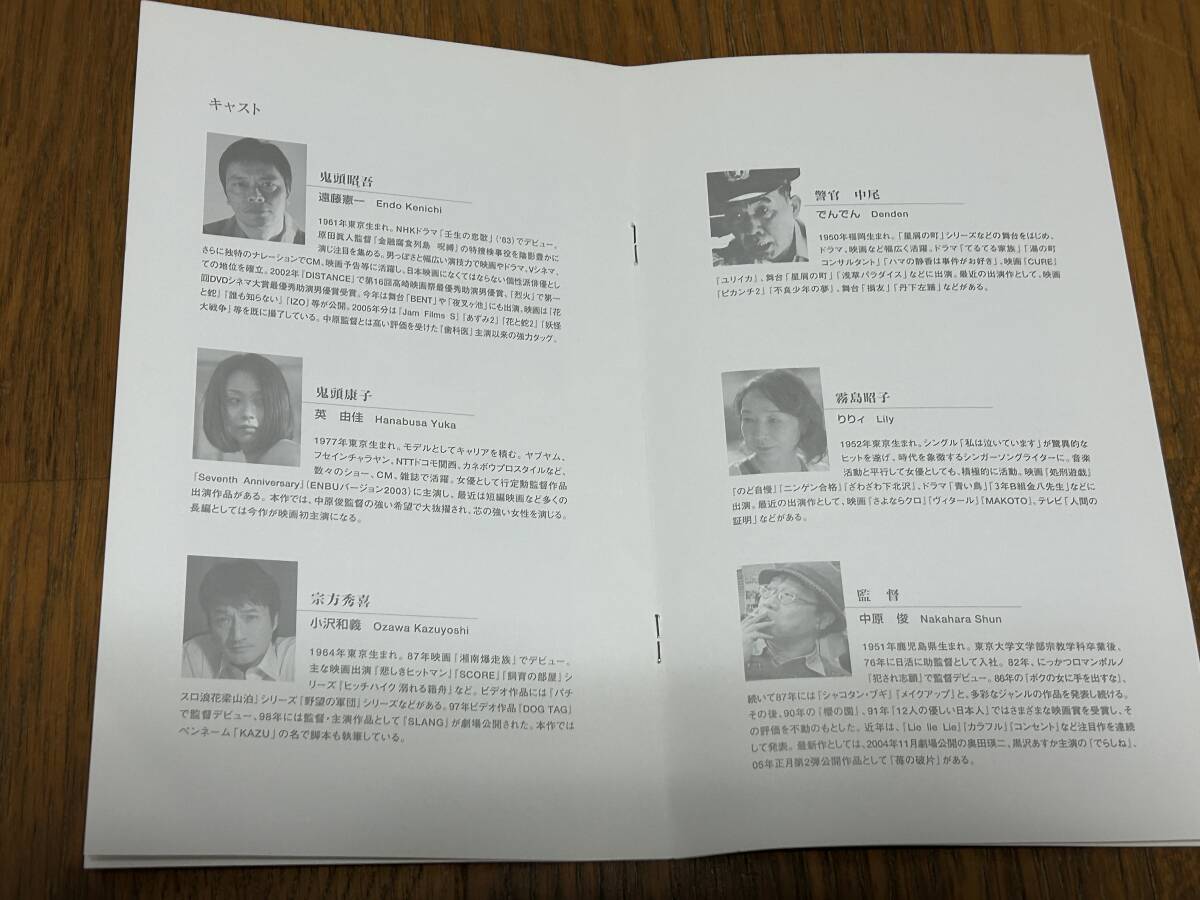 キャスト
鬼頭昭吾
遠藤憲一 Endo Kenichi
1961年東京生まれ。NHKドラマ『壬生の恋歌』('83)でデビュー。
原田眞人監督『金融腐食列島 呪縛』の特捜検事役を陰影豊かに
演じ注目を集める。男っぽさと幅広い演技力で映画やドラマ、Vシネマ、
さらに独特のナレーションでCM、映画予告等に活躍し、日本映画になくてはならない個性派俳優とし
ての地位を確立。2002年『DISTANCE』で第16回高崎映画祭最優秀助演男優賞、『烈火』で第一
回DVDシネマ大賞最優秀助演男優賞受賞。今年は舞台『BENT』や『夜叉ヶ池』にも出演、映画は『花
と蛇』『誰も知らない』『IZO』等が公開。2005年分は『Jam Films S』『あずみ2』『花と蛇2』『妖怪
大戦争』等を既に撮了している。中原監督とは高い評価を受けた『歯科医』主演以来の強力タッグ。
鬼頭康子
英 由佳 Hanabusa Yuka
1977年東京生まれ。モデルとしてキャリアを積む。ヤブヤム、
フセインチャラヤン、NTTドコモ関西、カネボウプロスタイルなど、
数々のショー、CM、雑誌で活躍。女優として行定勲監督作品
『Seventh Anniversary』(ENBUバージョン2003)に主演し、最近は短編映画など多くの
出演作品がある。本作では、中原俊監督の強い希望で大抜擢され、芯の強い女性を演じる。
長編としては今作が映画初主演になる。
宗方秀喜
小沢和義 Ozawa Kazuyoshi
1964年東京生まれ。87年映画『湘南爆走族』でデビュー。
主な映画出演『悲しきヒットマン』『SCORE』『飼育の部屋』シ
リーズ『ヒッチハイク 溺れる箱舟』など。ビデオ作品には『パチ
スロ浪花梁山泊』シリーズ『野望の軍団』シリーズなどがある。97年ビデオ作品『DOG TAG』
で監督デビュー、98年には監督・主演作品として『SLANG』が劇場公開された。本作では
ペンネーム「KAZU」の名で脚本も執筆している。
警官 中尾
でんでん Denden
1950年福岡生まれ。「星屑の町」シリーズなどの舞台をはじめ、
ドラマ、映画など幅広く活躍。ドラマ『てるてる家族』『湯の町
コンサルタント』『ハマの静香は事件がお好き』、映画『CURE』
『ユリイカ』、舞台『星屑の町』『浅草パラダイス』などに出演。最近の出演作として、映画
『ピカンチ2』『不良少年の夢』、舞台『損友』『丹下左膳』などがある。
霧島昭子
りりィ Lily
1952年東京生まれ。シングル「私は泣いています」が驚異的な
ヒットを遂げ、時代を象徴するシンガーソングライターに。音楽
活動と平行して女優としても、積極的に活動。映画『処刑遊戯』
『のど自慢』『ニンゲン合格』『ざわざわ下北沢』、ドラマ『青い鳥』『3年B組金八先生』などに
出演。最近の出演作として、映画『さよならクロ』『ヴィタール』『MAKOTO』、テレビ『人間の
証明』などがある。
監 督
中原 俊 Nakahara Shun
1951年鹿児島県生まれ。東京大学文学部宗教学科卒業後、
76年に日活に助監督として入社。82年、にっかつロマンポルノ
『犯され志願』で監督デビュー。86年の『ボクの女に手を出すな』、
続いて87年には『シャコタン・ブギ』『メイクアップ』と、多彩なジャンルの作品を発表し続ける。
その後、90年の『櫻の園』、91年『12人の優しい日本人』ではさまざまな映画賞を受賞し、そ
の評価を不動のものとした。近年は、『Lie lie Lie』『カラフル』『コンセント』など注目作を連続
して発表。最新作としては、2004年11月劇場公開の奥田瑛二、黒沢あすか主演の『でらしね』、
05年正月第2弾公開作品として『苺の破片』がある。